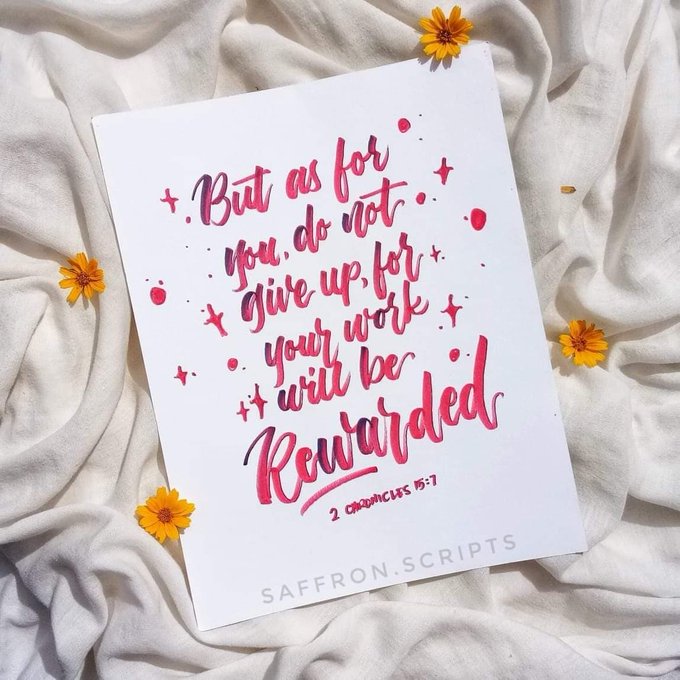 But as for
you, do not
give up, for
your work
will be
Rewarded
2 CHRONICLES 15:7
SAFFRON.SCRIPTS